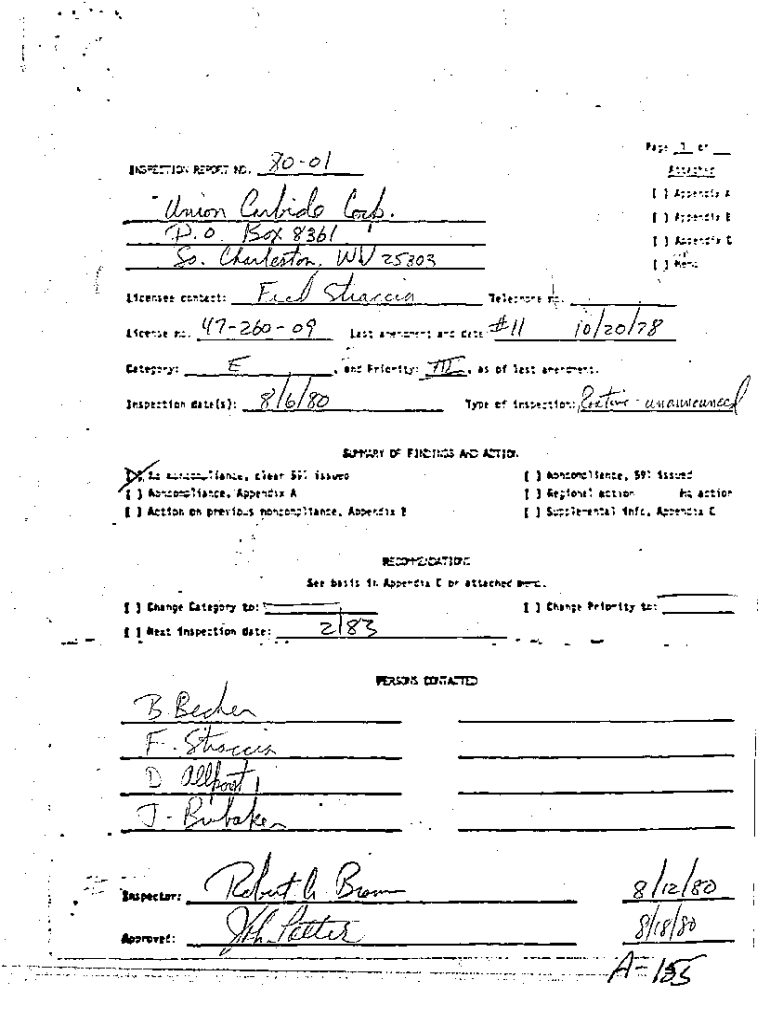 Page 1 of
INSPECTION REPORT NO. 80-01
Attached
Union Carbide Corp.
[ ] Appendix A
P.O. Box 8361
[ ] Appendix B
So. Charleston, WV 25303
[ ] Appendix C
[ ] Memo
Licensee contact: Fred Straccia Telephone no.
License no. 47-260-09 Last amendment and date #11 10/20/78
Category: E, and Priority: III, as of last amendment.
Inspection date(s): 8/6/80 Type of inspection: Routine - unannounced
SUMMARY OF FINDINGS AND ACTION
[ ] No noncompliance, clear 591 issued [ ] Noncompliance, 591 issued
[ ] Noncompliance, Appendix A [ ] Regional action No action
[ ] Action on previous noncompliance, Appendix B [ ] Supplemental info, Appendix C
RECOMMENDATIONS
See basis in Appendix C or attached memo.
[ ] Change Category to: [ ] Change Priority to:
[ ] Next inspection date: 2/83
PERSONS CONTACTED
B. Becher
F. Straccia
D Allport
J. Brubaker
Inspector: Robert G Brown 8/12/80
Approved: 8/18/80
A-155